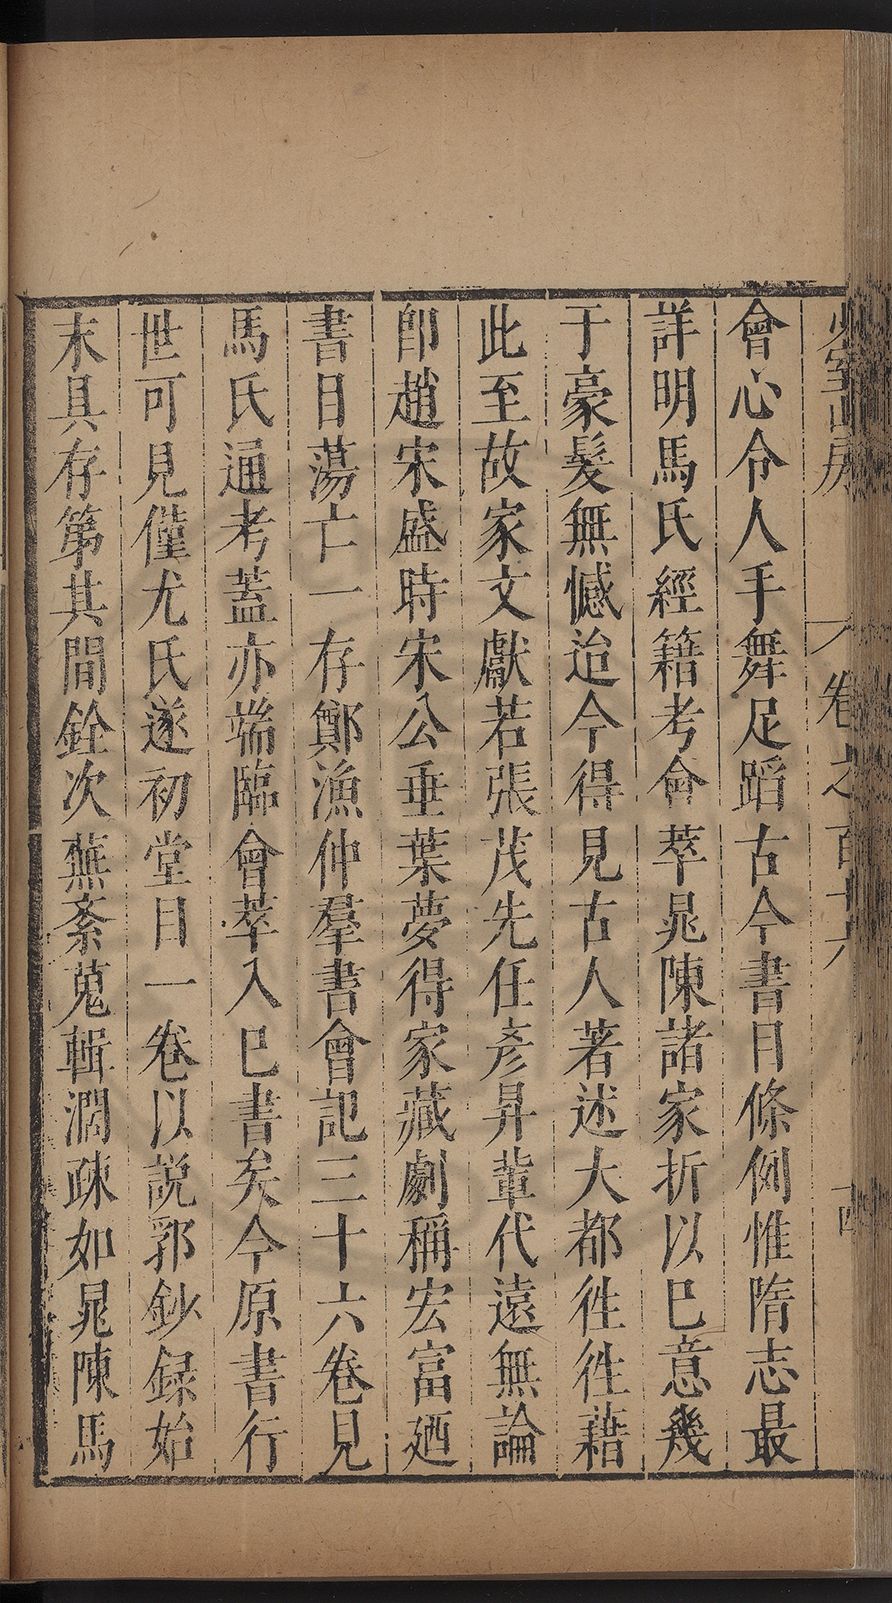 少室山房 卷之百十六 十四
會心令人手舞足蹈古今書目條例惟隋志最
詳明馬氏經籍考會萃晁陳諸家折以巳意幾
于豪髮無憾迨今得見古人著述大都徃徃藉
此至故家文獻若張茂先任彥昇輩代遠無論
卽趙宋盛時宋公垂葉夢得家藏劇稱宏富廼
書目蕩亡一存鄭漁仲羣書會記三十六卷見
馬氏通考蓋亦端臨會萃入巳書矣今原書行
世可見僅尤氏遂初堂目一卷以説郛鈔録始
末具存第其間銓次蕪紊蒐輯濶疎如晁陳馬